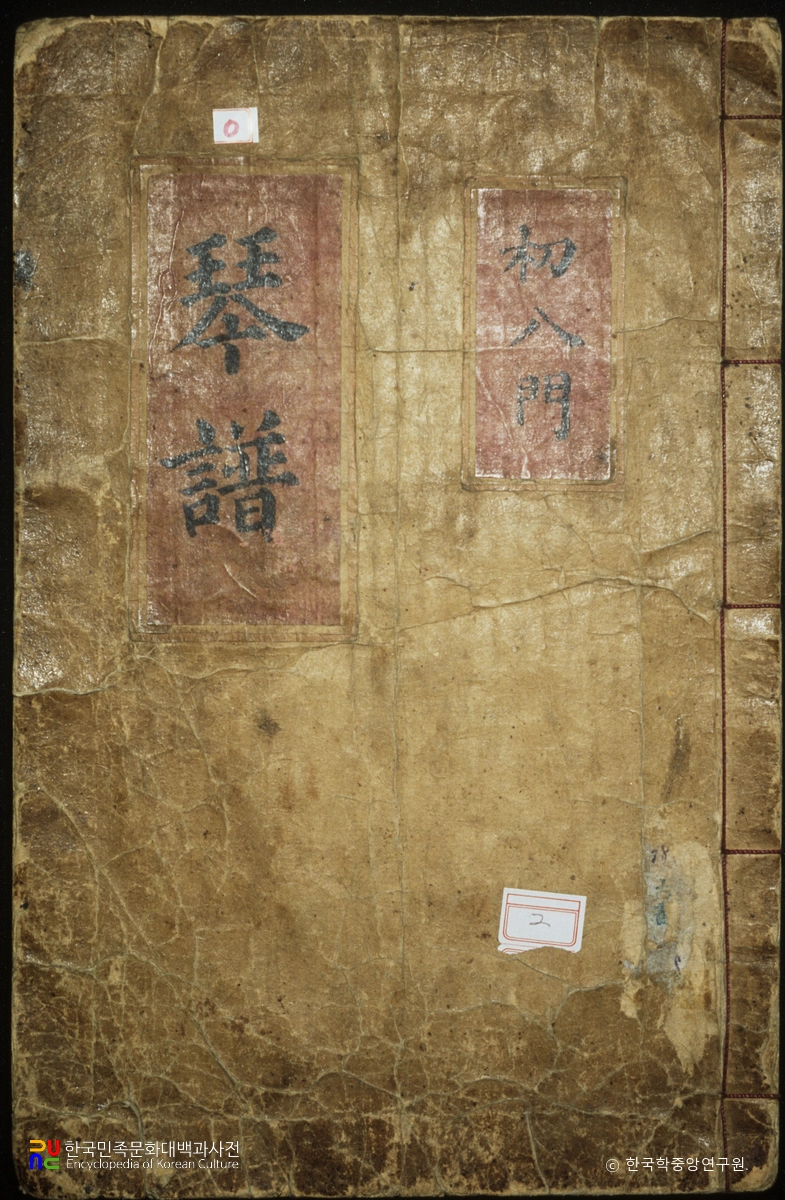 初入門
琴譜
0
2
한국민족문화대백과사전
Encyclopedia of Korean Culture
© 한국학중앙연구원